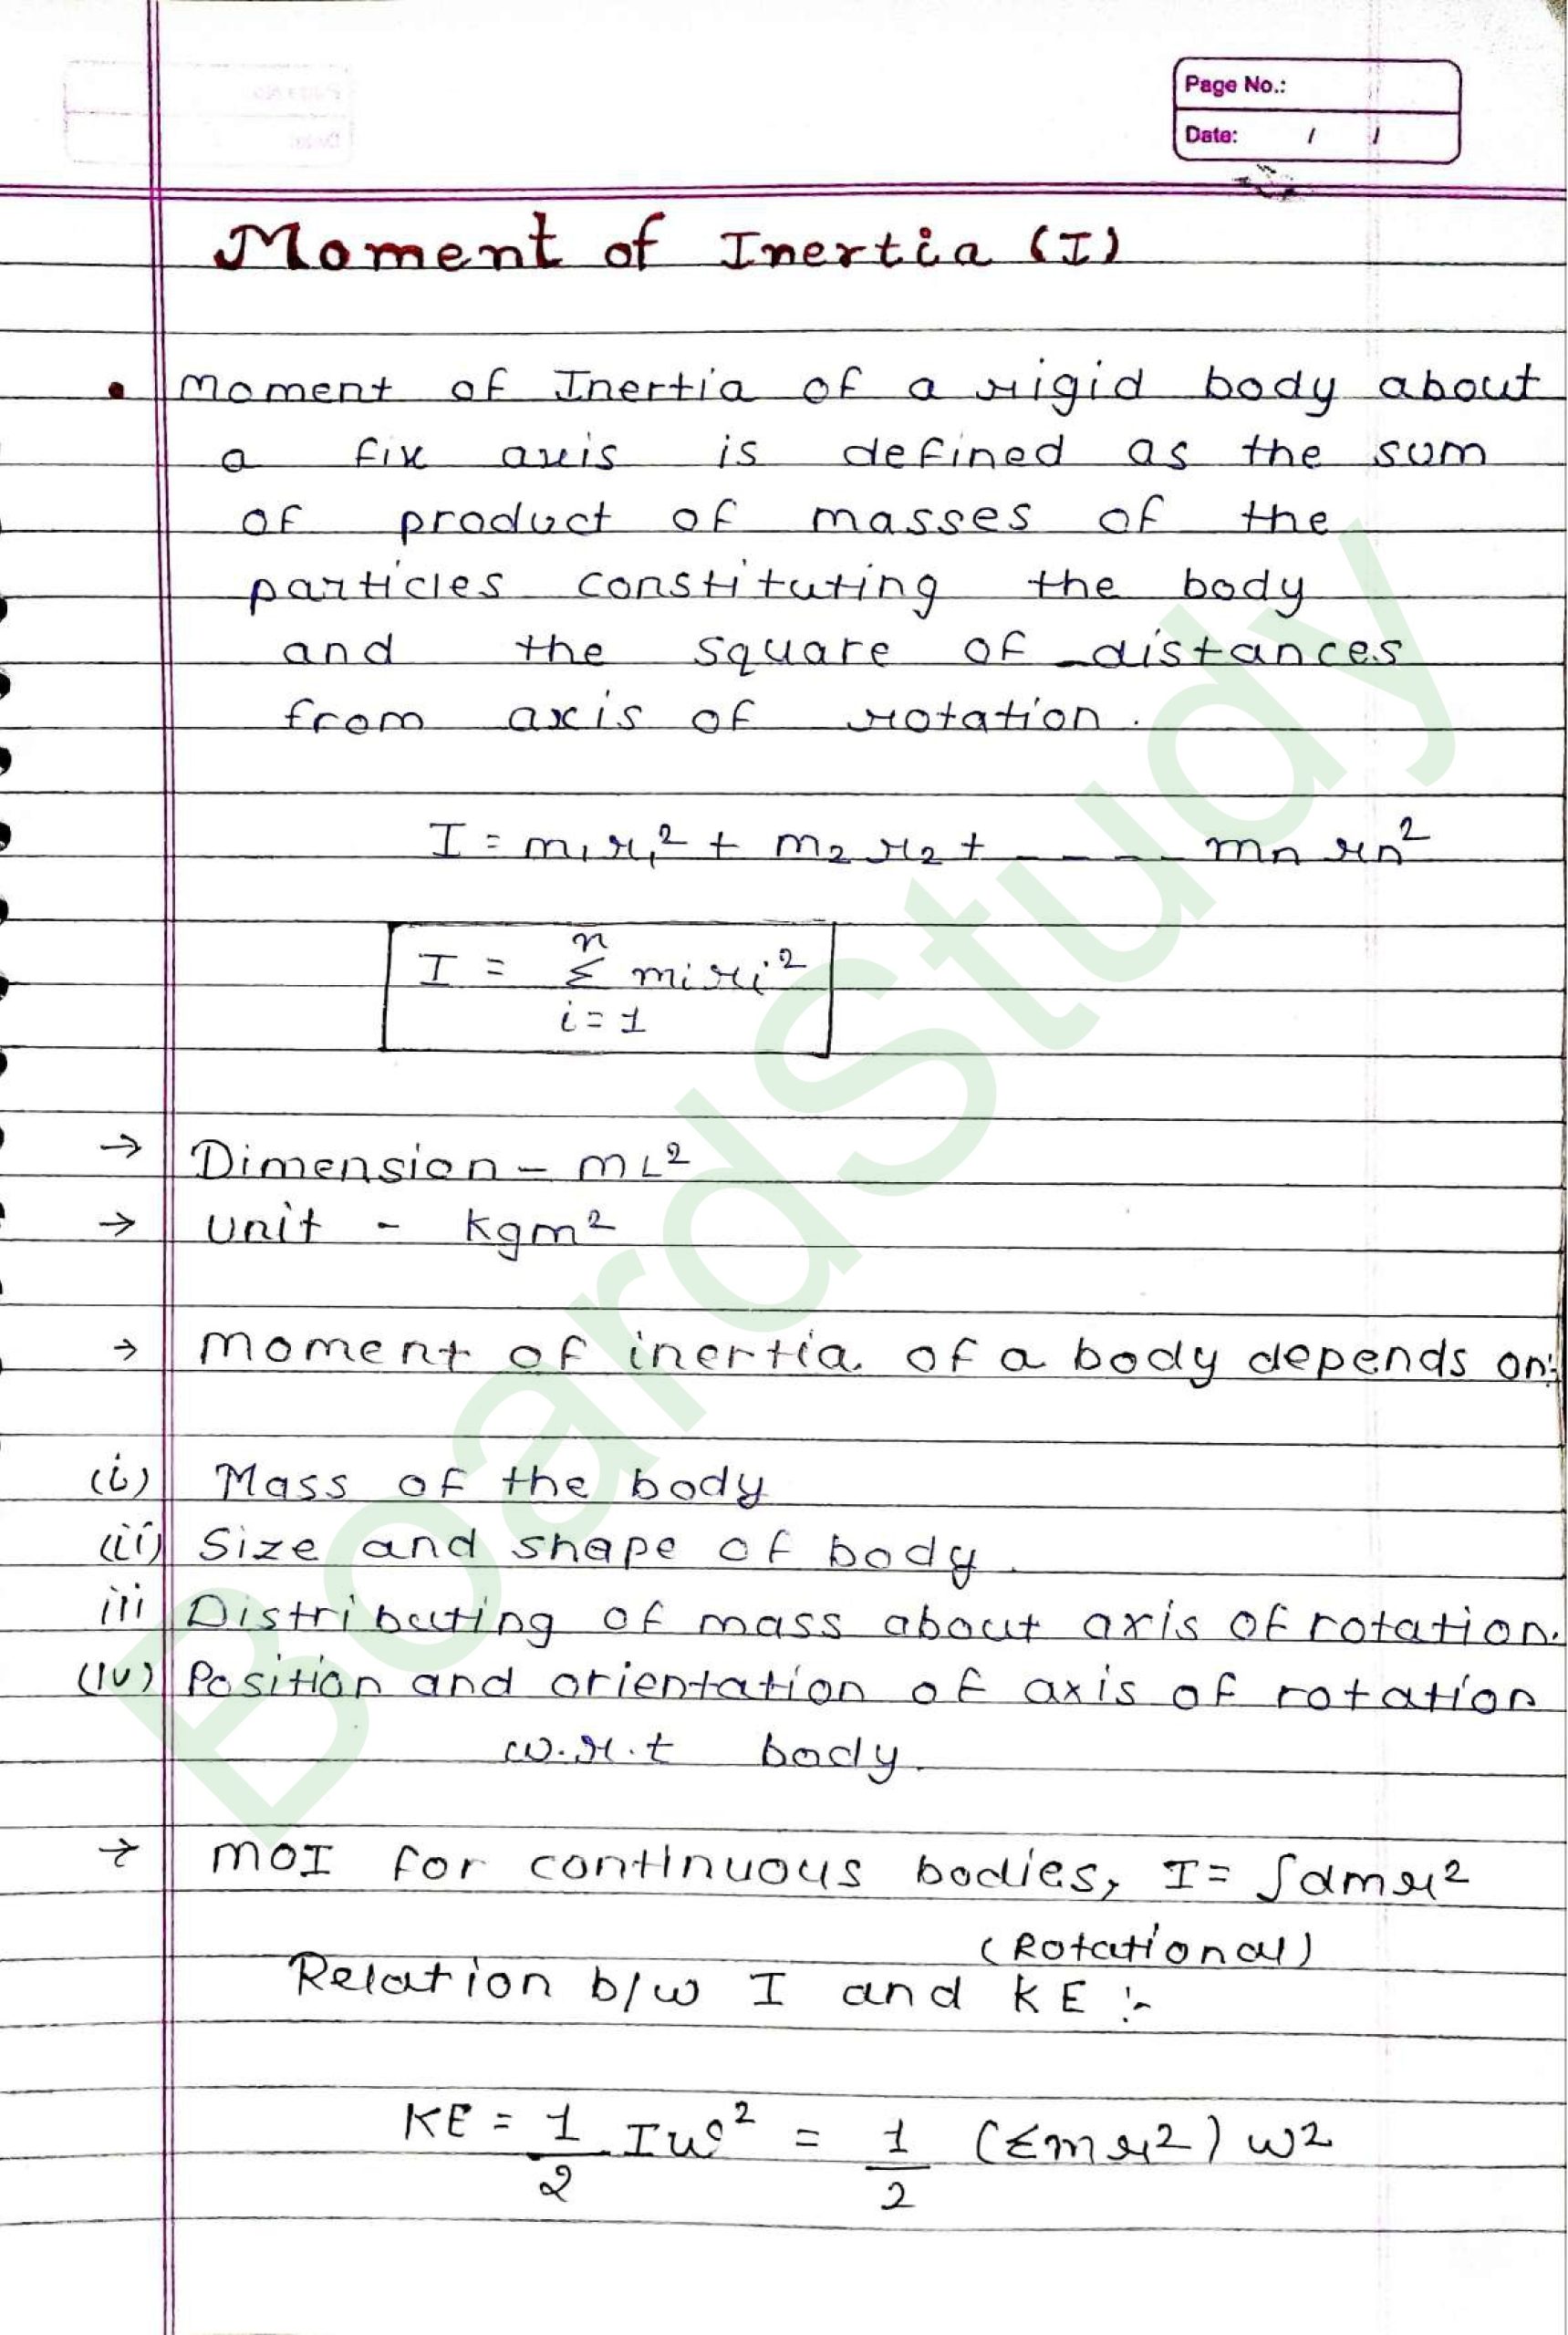 Page No.:
Date: / /
Moment of Inertia (I)
• Moment of Inertia of a rigid body about
a fix axis is defined as the sum
of product of masses of the
particles constituting the body
and the square of distances
from axis of rotation.
I = m₁r₁² + m₂r₂ + ----- mₙrₙ²
n
I = Σ mᵢrᵢ²
i=1
→ Dimension - ML²
→ Unit - kgm²
→ Moment of inertia of a body depends on:
(i) Mass of the body
(ii) Size and shape of body.
iii Distributing of mass about axis of rotation.
(iv) Position and orientation of axis of rotation
w.r.t body.
→ MOI for continuous bodies, I = ∫dmr²
(Rotational)
Relation b/w I and KE :-
KE = 1/2 Iω² = 1/2 (Σmr²) ω²
BoardStudy